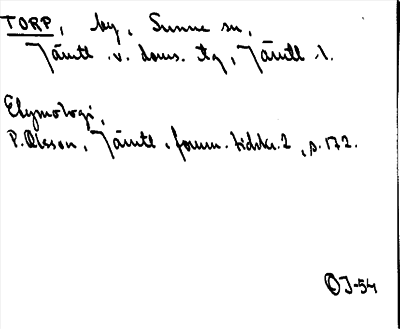 TORP, by, Sunne sn,
Jämtl. v. doms. tg, Jämtl. l.
Etymologi,
P. Olsson, Jämtl. fornm. tidskr. 2, s. 172.
OJ-54